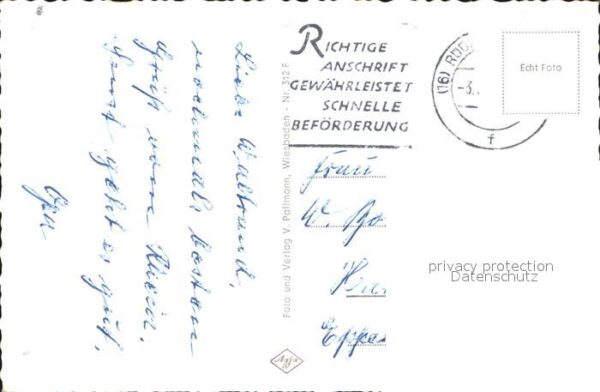 Liebe Waltraud,
nochmals besten
Gruß vom Rhein.
Sonst geht es gut,
Opa
Foto und Verlag V. Pattmann, Wiesbaden - Nr. 312 F
Agfa
RICHTIGE
ANSCHRIFT
GEWÄHRLEISTET
SCHNELLE
BEFÖRDERUNG
(16) RÜD
-3.
f
Echt Foto
Frau
W. Bo
Eppe
privacy protection
Datenschutz